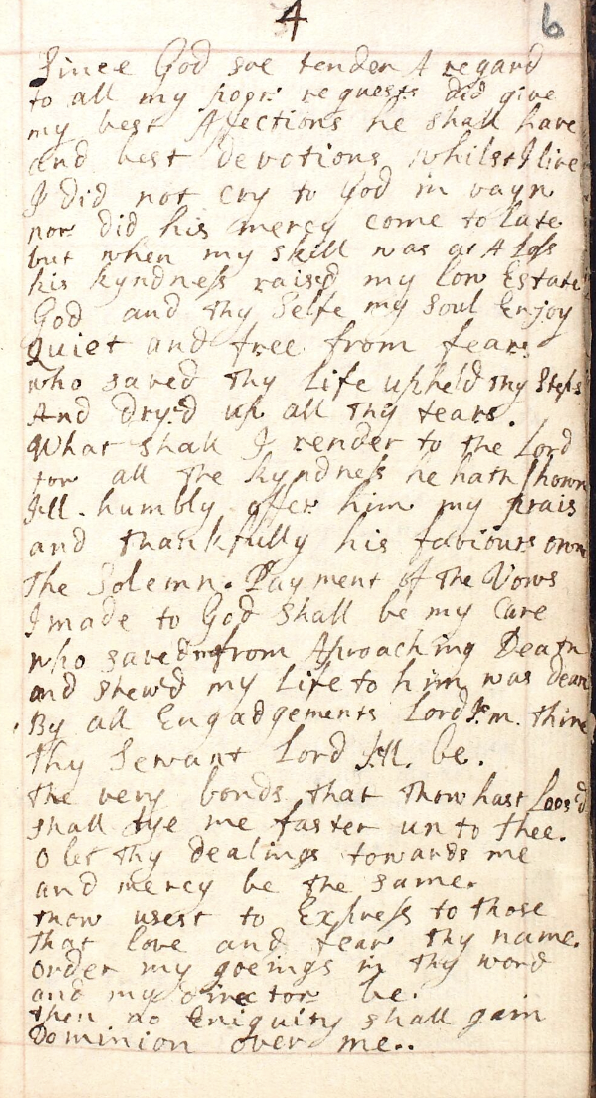 4
6
Since God soe tender A regard
to all my poor requests did give
my best Afections he shall have
and best devotions whilst I live
I did not cry to God in vayn
nor did his mercy come to late
but when my skill was at A loss
his kyndness raisd my low Estate
God and thy Selfe my Soul Enjoy
Quiet and free from fears
who saved thy life upheld thy Steps
And dry:d up all thy tears.
What shall I render to the Lord
for all the kyndness he hath shown
I'll humbly offer him my prais
and thankfully his faviours own
The Solemn Payment of the Vows
I made to God shall be my Care
who saved me from Aproaching Death
and shew'd my Life to him was dear
By all Engadgements Lord I'm thine
Thy Servant Lord I'll be.
the very bonds that thow hast Loos'd
shall tye me faster unto thee.
O let thy dealings towards me
and mercy be the same.
thow usest to Express to those
that love and fear thy name.
Order my goeings in thy word
and my director be.
then no Eniquity shall gain
Dominion over me..